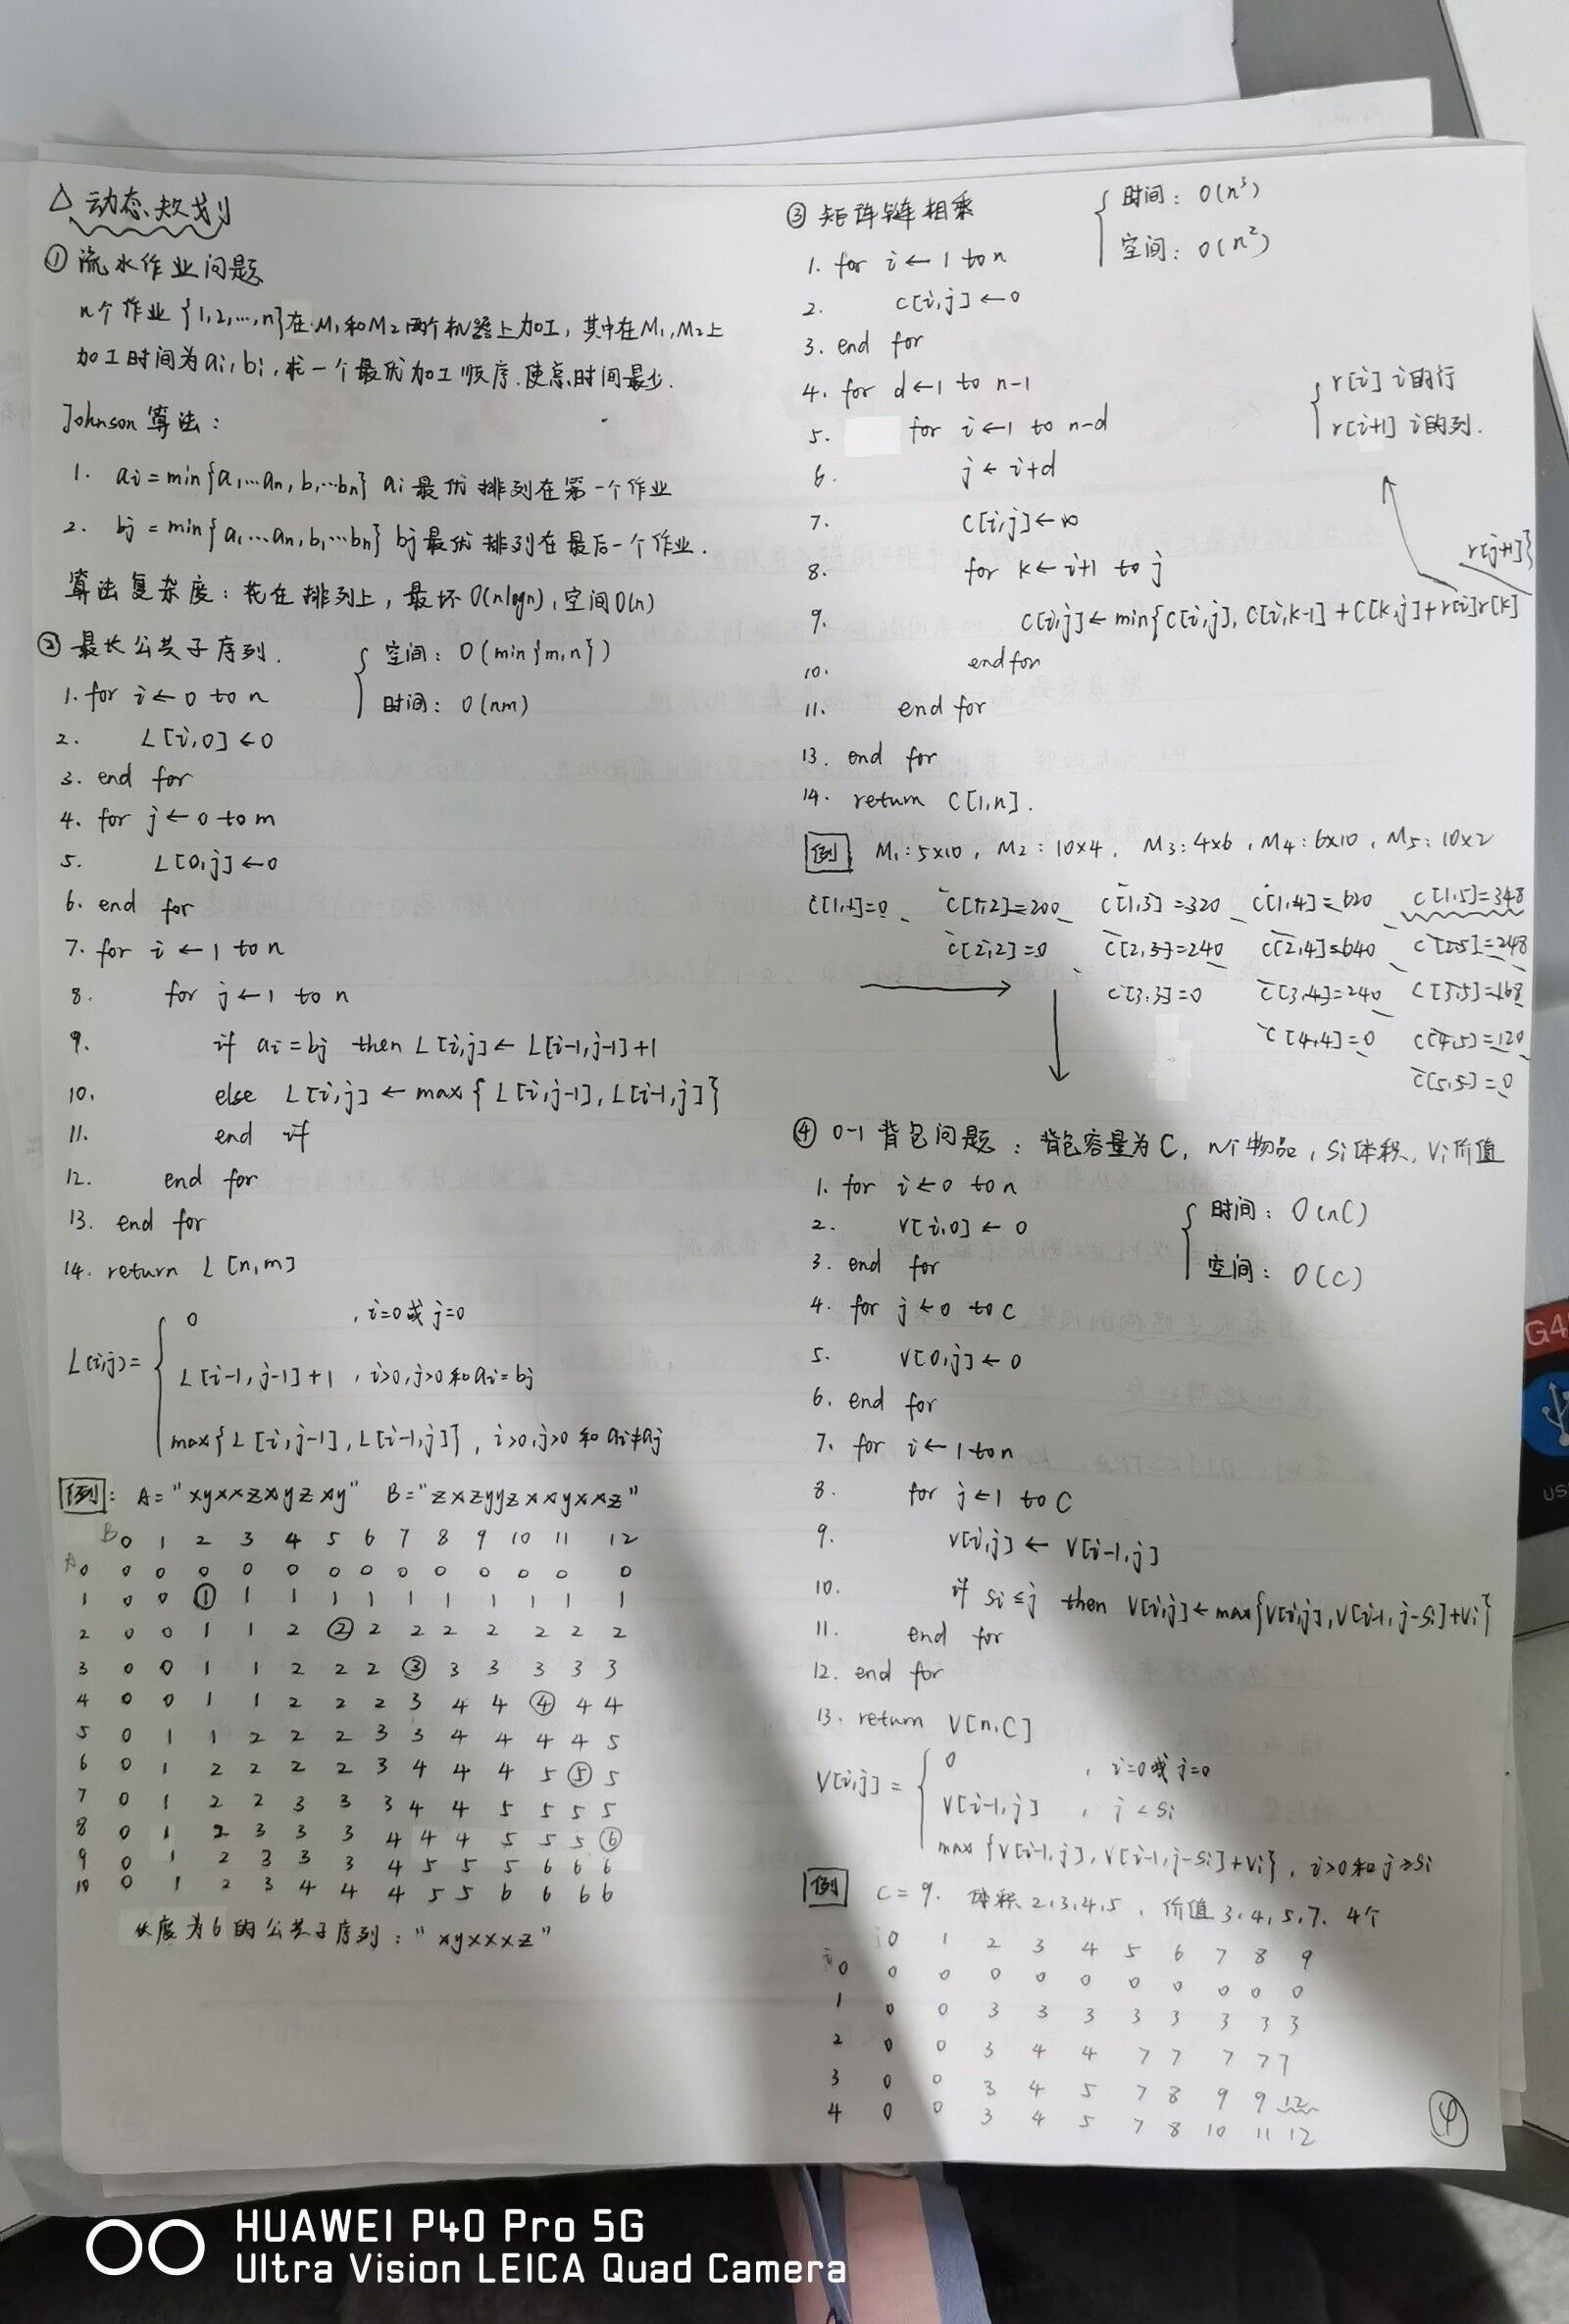 △ 动态规划
① 流水作业问题
n个作业{1,2,…,n}在M₁和M₂两个机器上加工，其中在M₁,M₂上
加工时间为ai,bi，求一个最优加工顺序.使总时间最少.
Johnson 算法：
1. ai=min{a₁…an, b₁…bn} ai最优排列在第一个作业
2. bj=min{a₁…an, b₁…bn} bj最优排列在最后一个作业.
算法复杂度：花在排列上，最坏O(nlogn)，空间O(n)
② 最长公共子序列.
空间：O(min{m,n})
时间：O(nm)
1. for i←0 to n
2. L[i,0]←0
3. end for
4. for j←0 to m
5. L[0,j]←0
6. end for
7. for i←1 to n
8. for j←1 to n
9. if ai=bj then L[i,j]←L[i-1,j-1]+1
10. else L[i,j]←max{L[i,j-1],L[i-1,j]}
11. end if
12. end for
13. end for
14. return L[n,m]
L[i,j]=
0 ，i=0或j=0
L[i-1,j-1]+1 ，i>0,j>0和ai=bj
max{L[i,j-1],L[i-1,j]}，i>0,j>0和ai≠aj
例：A="xyxxzxyzxy" B="zxzyyzxxyxxz"
B 0 1 2 3 4 5 6 7 8 9 10 11 12
A 0 0 0 0 0 0 0 0 0 0 0 0 0 0
1 0 0 ① 1 1 1 1 1 1 1 1 1 1
2 0 0 1 1 2 ② 2 2 2 2 2 2 2
3 0 0 1 1 2 2 2 ③ 3 3 3 3 3
4 0 0 1 1 2 2 2 3 4 4 ④ 4 4
5 0 1 1 2 2 2 3 3 4 4 4 4 5
6 0 1 2 2 2 2 3 4 4 4 5 ⑤ 5
7 0 1 2 2 3 3 3 4 4 5 5 5 5
8 0 1 2 3 3 3 4 4 4 5 5 5 ⑥
9 0 1 2 3 3 3 4 5 5 5 6 6 6
10 0 1 2 3 4 4 4 5 5 6 6 6 6
长度为6的公共子序列："xyxxxz"
③ 矩阵链相乘
时间：O(n³)
空间：O(n²)
1. for i←1 to n
2. C[i,j]←0
3. end for
4. for d←1 to n-1
5. for i←1 to n-d
6. j←i+d
7. C[i,j]←∞
8. for k←i+1 to j
9. C[i,j]←min{C[i,j], C[i,k-1]+C[k,j]+r[i]r[k]
r[j+1]}
r[i] i的行
r[i+1] i的列.
10. end for
11. end for
13. end for
14. return C[1,n].
例 M₁:5×10, M₂:10×4, M₃:4×6, M₄:6×10, M₅:10×2
C[1,1]=0 C[1,2]=200 C[1,3]=320 C[1,4]=620 C[1,5]=348
C[2,2]=0 C[2,3]=240 C[2,4]=640 C[2,5]=248
C[3,3]=0 C[3,4]=240 C[3,5]=168
C[4,4]=0 C[4,5]=120
C[5,5]=0
④ 0-1背包问题：背包容量为C，n个物品，Si体积，Vi价值
时间：O(nC)
空间：O(C)
1. for i←0 to n
2. V[i,0]←0
3. end for
4. for j←0 to C
5. V[0,j]←0
6. end for
7. for i←1 to n
8. for j←1 to C
9. V[i,j]←V[i-1,j]
10. if Si≤j then V[i,j]←max{V[i,j],V[i-1,j-Si]+Vi}
11. end for
12. end for
13. return V[n,C]
V[i,j]=
0 ，i=0或j=0
V[i-1,j] ，j<Si
max{V[i-1,j],V[i-1,j-Si]+Vi}，i>0和j≥Si
例 C=9. 体积2,3,4,5，价值3,4,5,7. 4个
j 0 1 2 3 4 5 6 7 8 9
i 0 0 0 0 0 0 0 0 0 0 0
1 0 0 3 3 3 3 3 3 3 3
2 0 0 3 4 4 7 7 7 7 7
3 0 0 3 4 5 7 8 9 9 12
4 0 0 3 4 5 7 8 10 11 12
④
G4
US
HUAWEI P40 Pro 5G
Ultra Vision LEICA Quad Camera